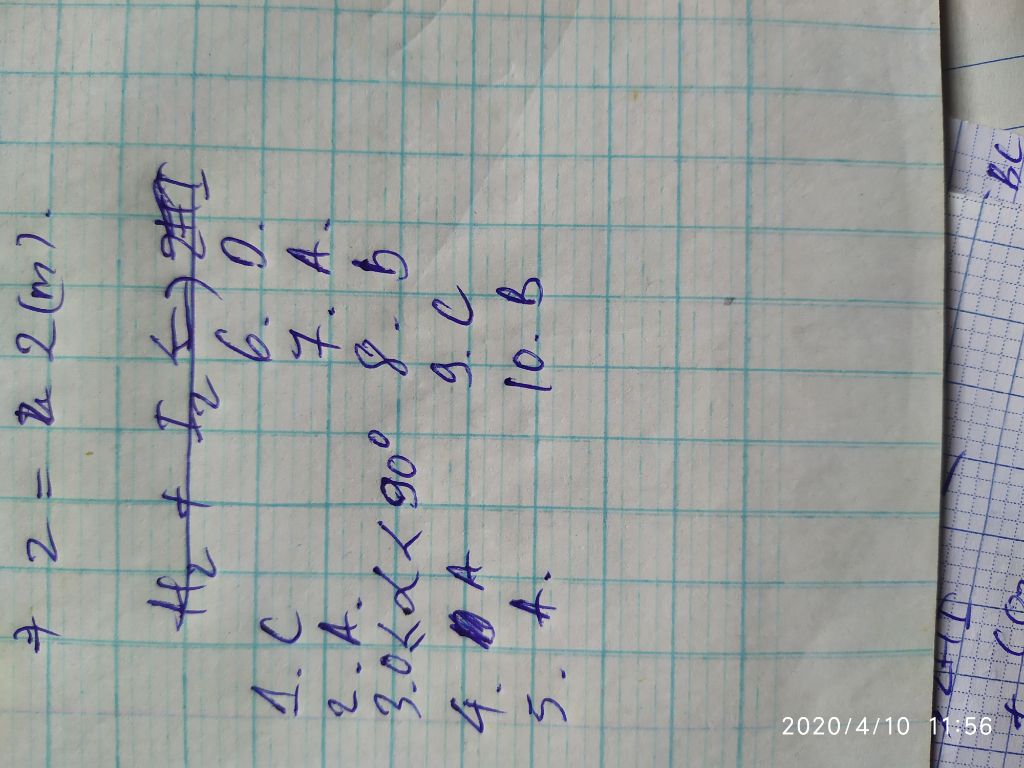 7 2 = 2 (m).
H2 + I2 ⇆ 2HI
1. C 6. D.
2. A. 7. A.
3. 0 ≤ α < 90° 8. B
4. A 9. C
5. A. 10. B
BC
2020/4/10 11:56